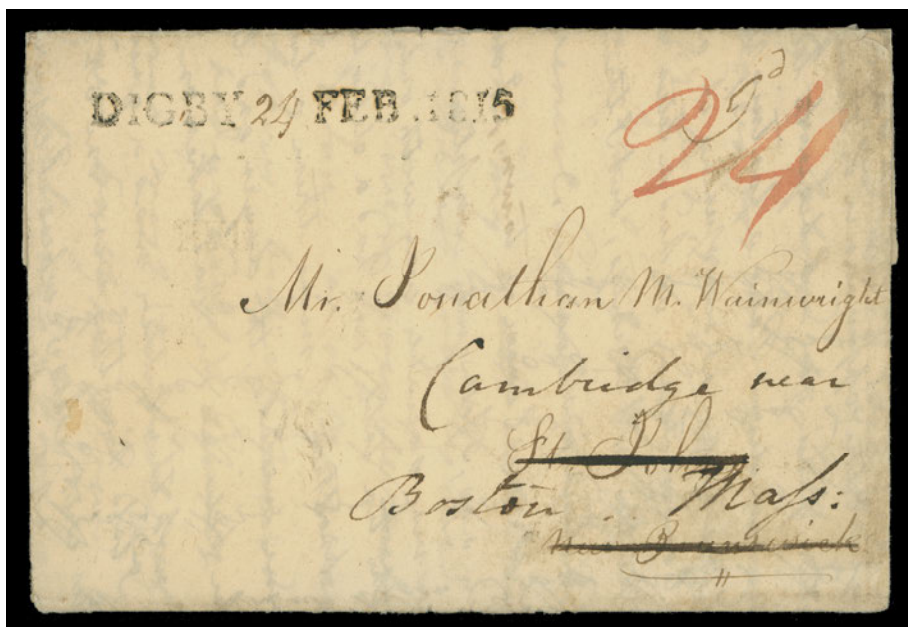 DIGBY 24 FEB. 1815
24
Mr. Jonathan M. Wainwright
Cambridge near
St. John
Boston Mass:
New Brunswick